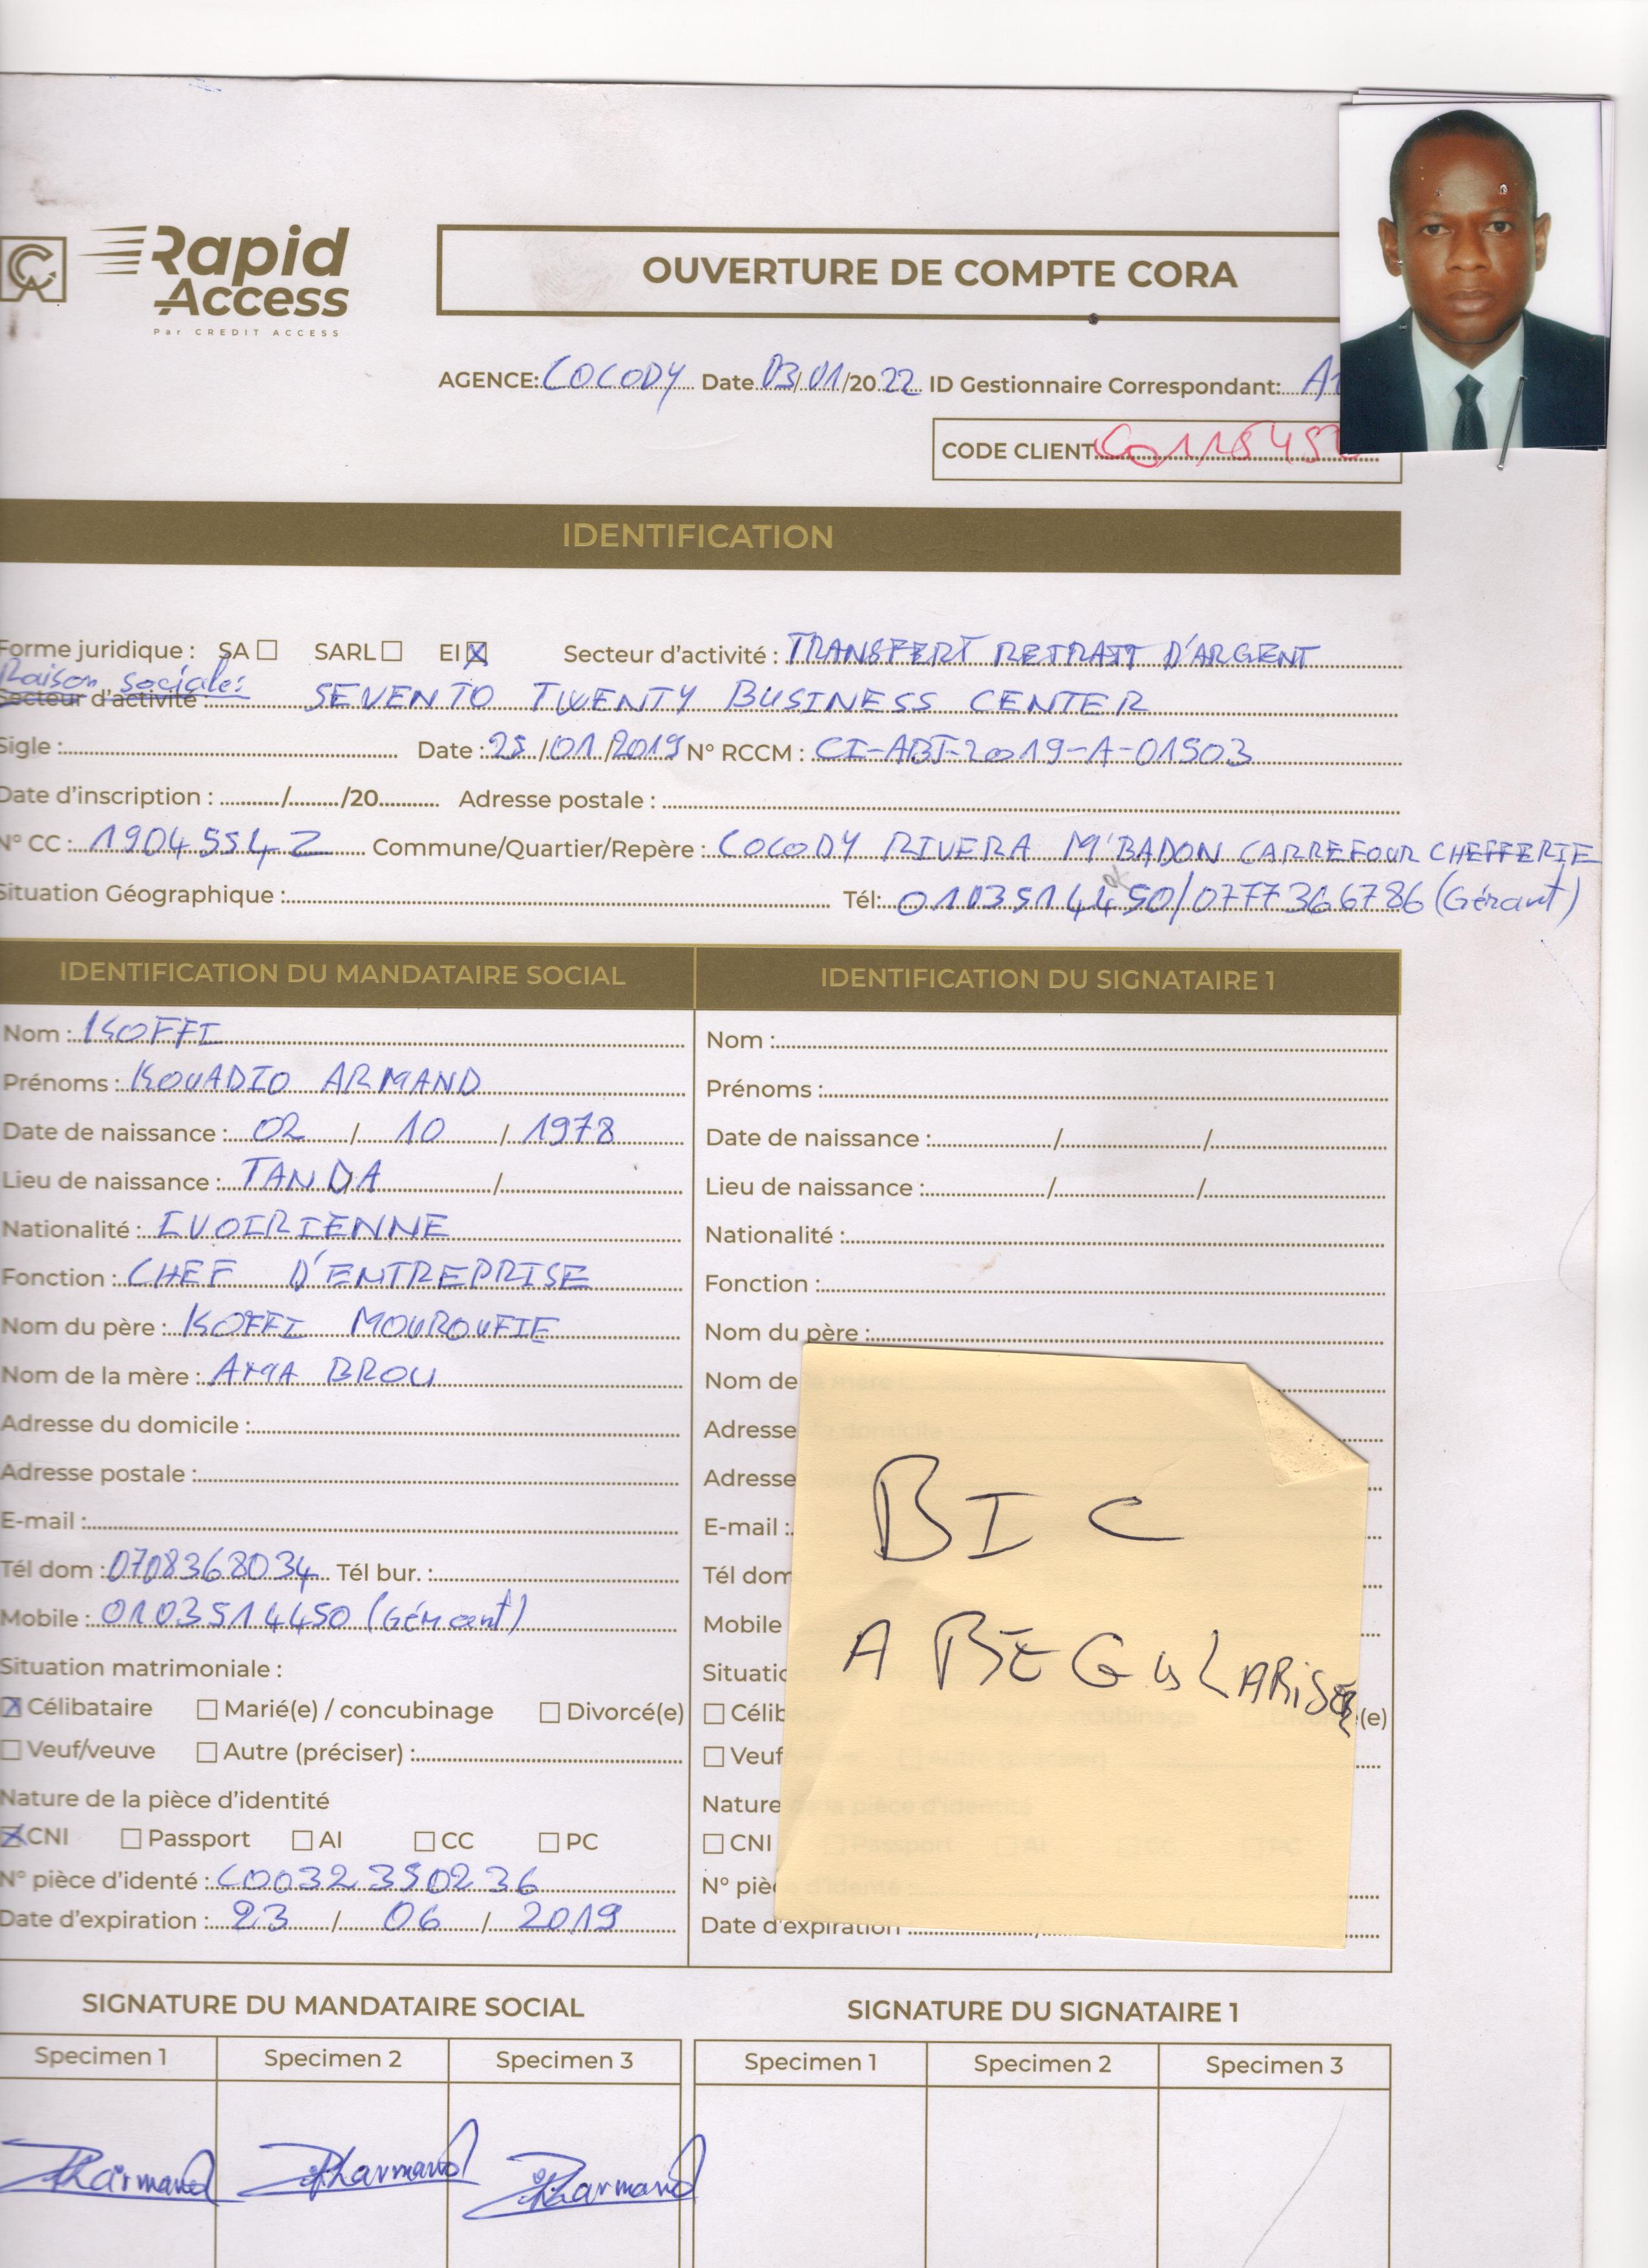 Rapid
Access
Par CREDIT ACCESS
OUVERTURE DE COMPTE CORA
AGENCE: COCODY Date 03/01/2022 ID Gestionnaire Correspondant:
CODE CLIENT
IDENTIFICATION
Forme juridique : SA SARL EI Secteur d'activité : TRANSFERT RETRAIT D'ARGENT
Raison sociale:
Secteur d'activité : SEVEN TO TWENTY BUSINESS CENTER
Sigle : Date : 25/01/2019 N° RCCM : CI-ABJ-2019-A-01503
Date d'inscription : ....../....../20...... Adresse postale :
N° CC : 1904554 Z Commune/Quartier/Repère : COCODY RIVERA M'BADON CARREFOUR CHEFFERIE
Situation Géographique : Tél: 0103514450/0777366786 (Gérant)
IDENTIFICATION DU MANDATAIRE SOCIAL
Nom : KOFFI
Prénoms : KOUADIO ARMAND
Date de naissance : 02 / 10 / 1978
Lieu de naissance : TANDA /
Nationalité : IVOIRIENNE
Fonction : CHEF D'ENTREPRISE
Nom du père : KOFFI MOUROUFIE
Nom de la mère : AMA BROU
Adresse du domicile :
Adresse postale :
E-mail :
Tél dom : 0708368034 Tél bur. :
Mobile : 0103514450 (Gérant)
Situation matrimoniale :
Célibataire Marié(e) / concubinage Divorcé(e)
Veuf/veuve Autre (préciser) :
Nature de la pièce d'identité
CNI Passport AI CC PC
N° pièce d'identé : C0032350236
Date d'expiration : 23 / 06 / 2019
IDENTIFICATION DU SIGNATAIRE 1
Nom :
Prénoms :
Date de naissance : / /
Lieu de naissance : / /
Nationalité :
Fonction :
Nom du père :
Nom de
Adresse
Adresse
E-mail :
Tél dom
Mobile
(e)
Nature
CNI
Date d'expiration
BIC
A REGULARISER
SIGNATURE DU MANDATAIRE SOCIAL
Specimen 1 Specimen 2 Specimen 3
SIGNATURE DU SIGNATAIRE 1
Specimen 1 Specimen 2 Specimen 3